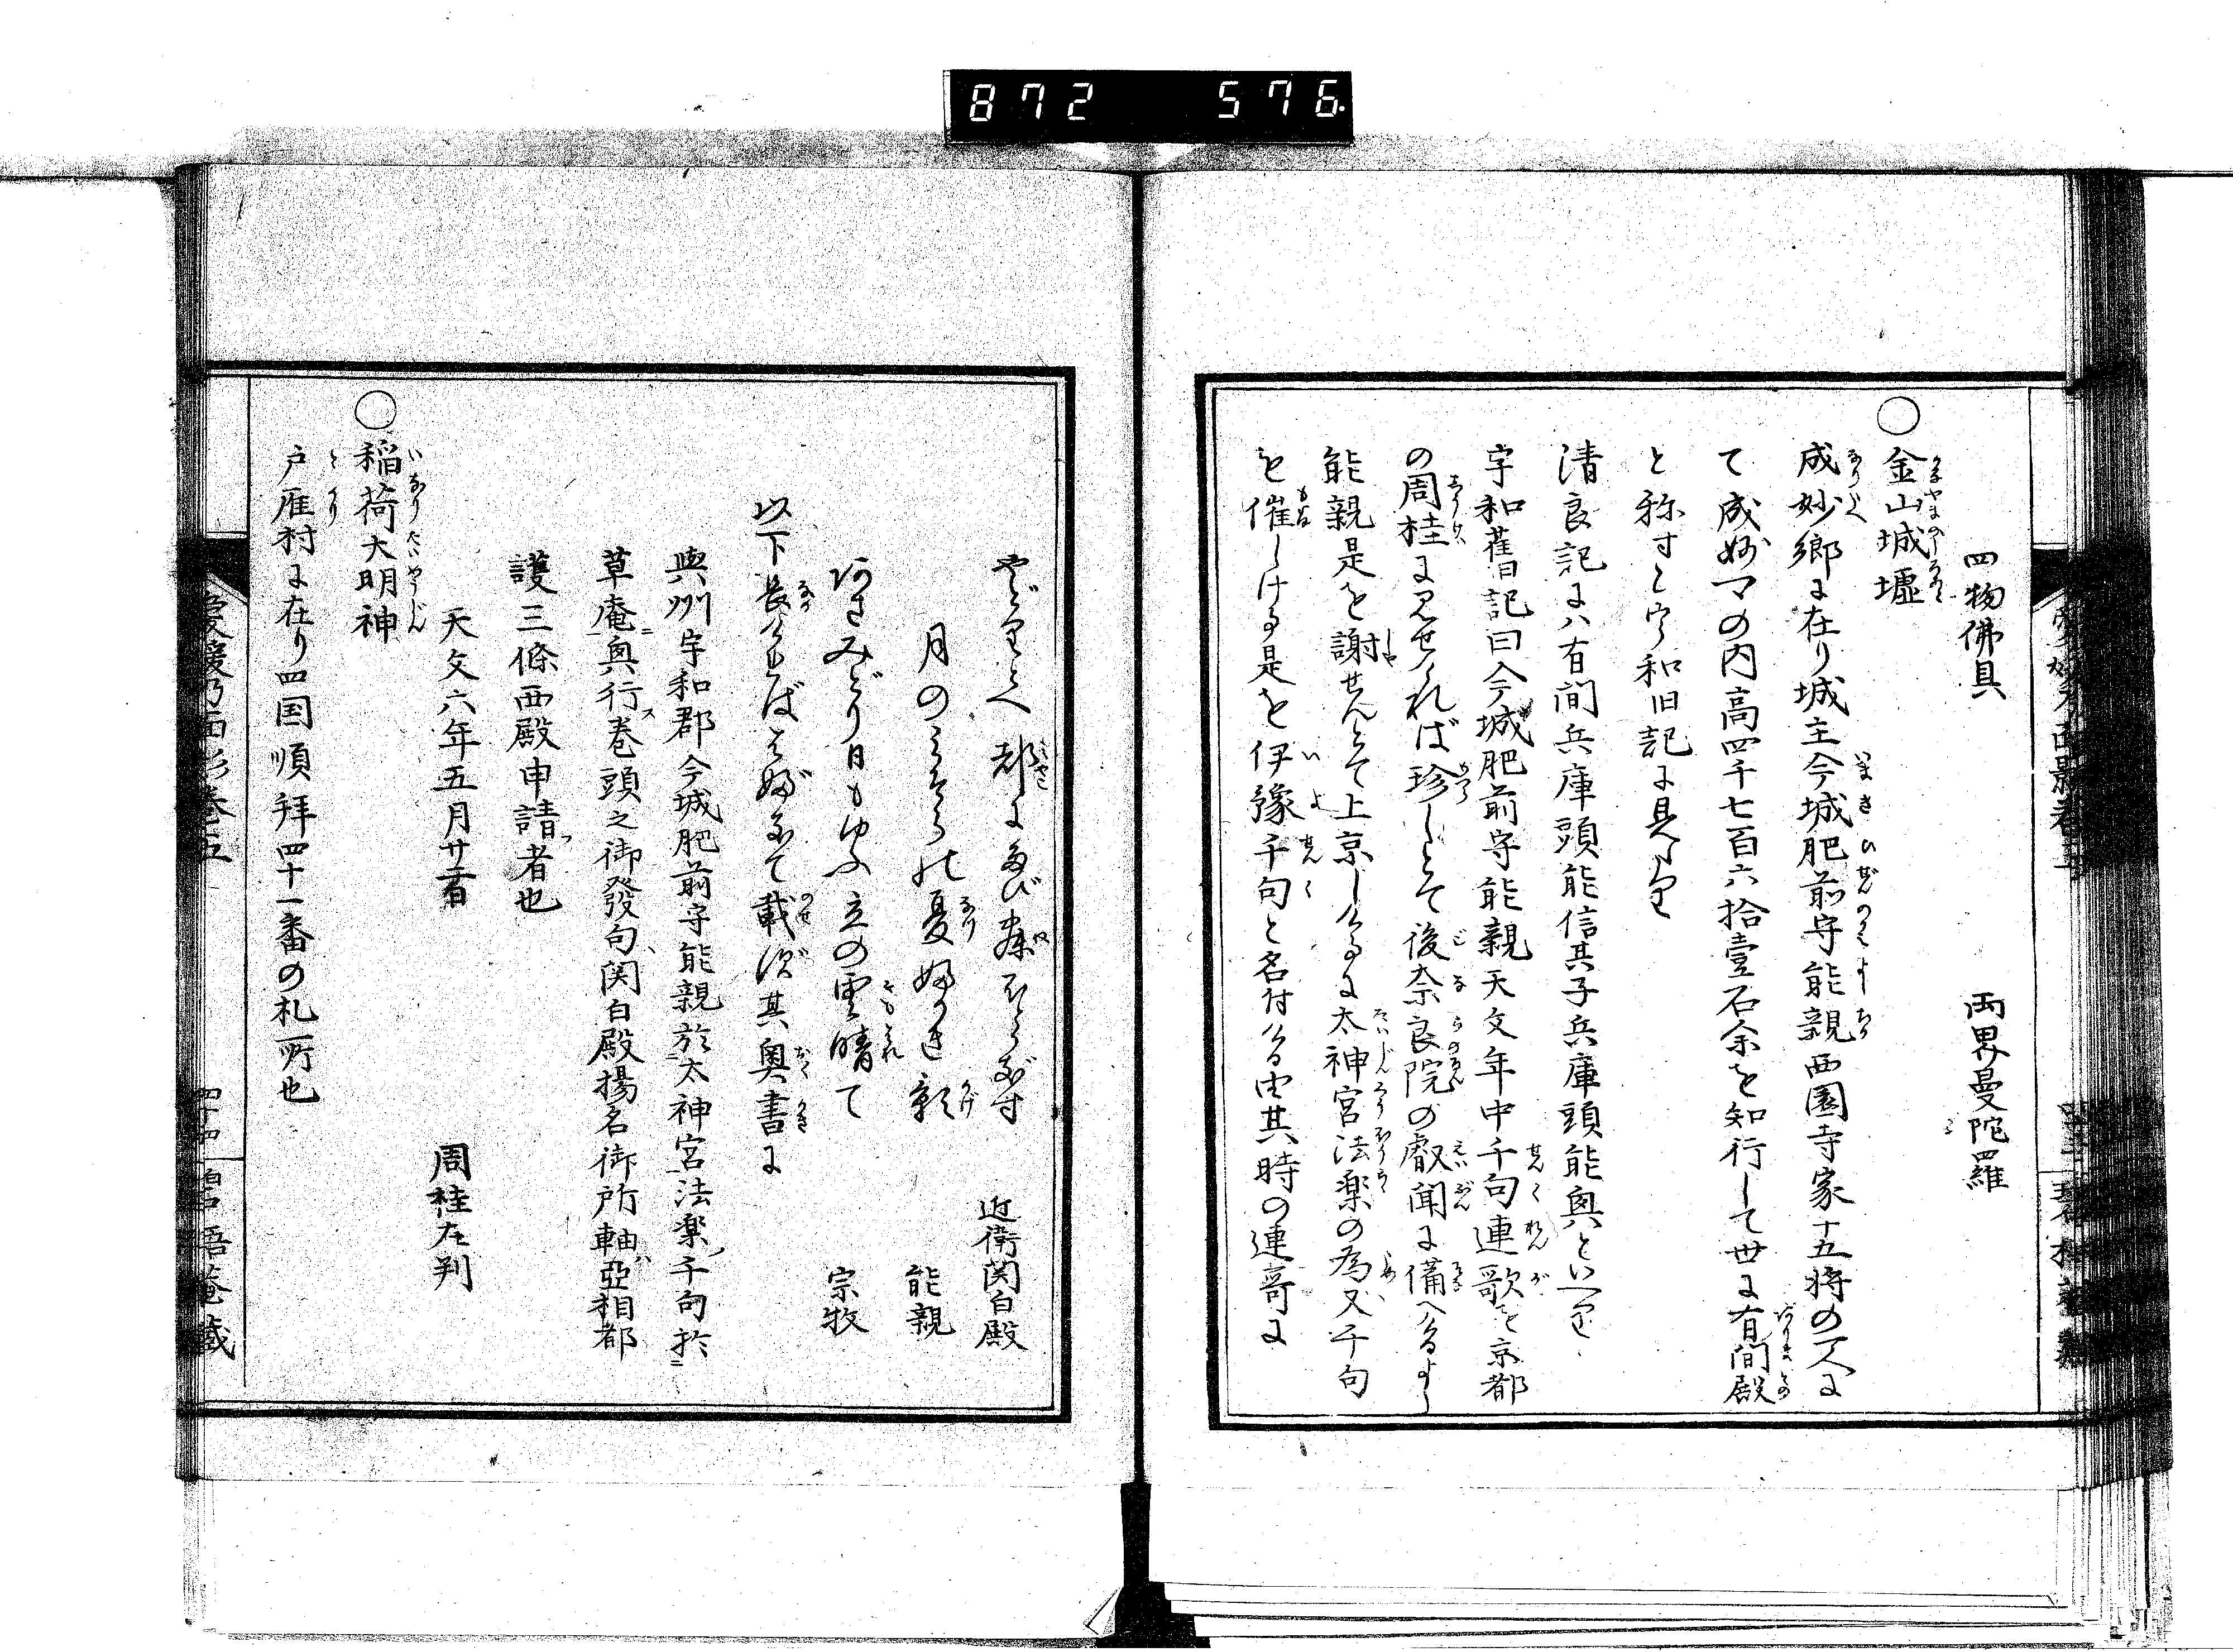 872 576
四物佛具 両界曼陀羅
○金山城墟
成妙郷に在り城主今城肥前守能親西園寺家十五将の一人に
て成妙の内高四千七百六拾壹石余を知行して世に有間殿
と称すと宇和旧記に見へたり
清良記には有間兵庫頭能信其子兵庫頭能輿といへり
宇和舊記曰今城肥前守能親天文年中千句連歌を京都
の周桂に見せければ珍しとて後奈良院の叡聞に備へけるよし
能親是を謝せんとて上京しけるに太神宮法楽の為又千句
を催しける是を伊豫千句と名付ける由其時の連哥に
都にたび寐
近衛関白殿
月の 夏 影
能親
みどり日もゆふ立の雲晴て
宗牧
以下長ければ 載ず其奥書に
與州宇和郡今城肥前守能親於太神宮法楽千句於
草庵興行巻頭之御發句関白殿揚名御所軸亞相都
護三條西殿申請者也
天文六年五月廿
周桂在判
○稲荷大明神
戸雁村に在り四国順拜四十一番の札所也
愛媛乃面影巻五
四十四 君吾菴蔵